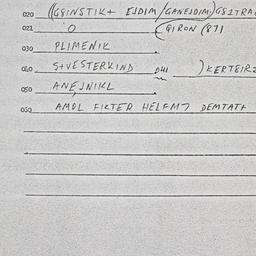 020 ((GSINSTIK+ EJDIM/GANEJDIM)GSITRA
021 O GIRON (871
030 PLIMENIK
040 S+VESTERKIND 041 )KERTEIRZ
050 ANEJNIKL
AMDL FIKTER HELFMT DEMTAT+